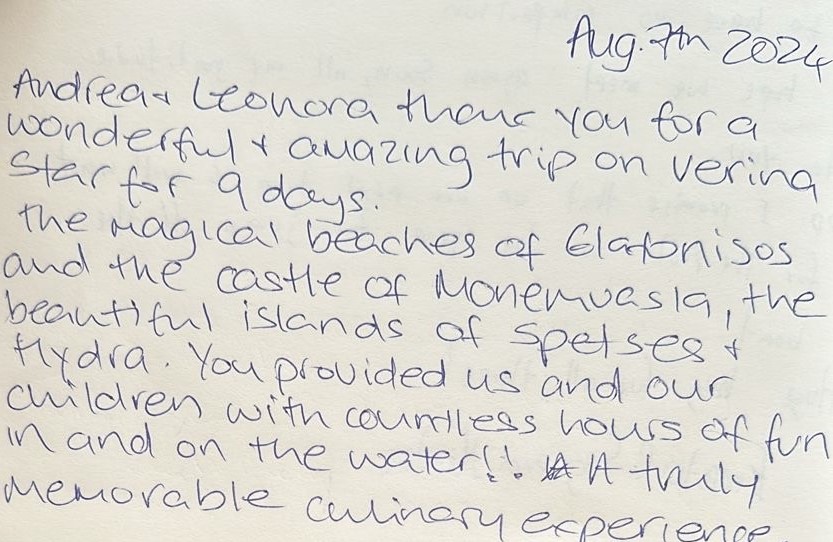 Aug. 7th 2024
Andrea + Leonora thank you for a
wonderful + amazing trip on verina
Star for 9 days.
the magical beaches of Elafonisos
and the castle of Monemvasia, the
beautiful islands of Spetses +
Hydra. You provided us and our
children with countless hours of fun
in and on the water!! A truly
memorable culinary experience.